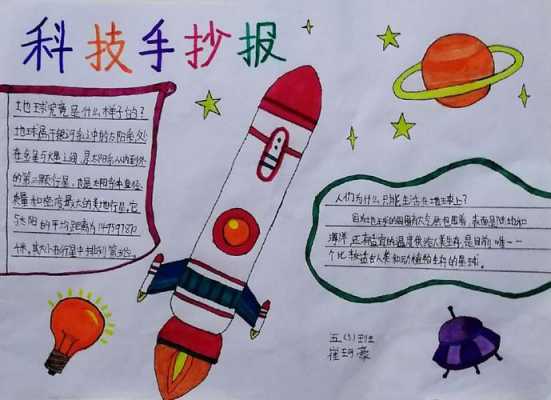 科技手抄报
地球究竟是什么样子的?
地球属于银河系之中的太阳系,处
在金星与火星之间,是太阳系从内到外
的第三颗行星,也是太阳系中直径、
质量和密度最大的类地行星。它
与太阳的平均距离为149597870
千米,其大小在行星中排列第5位。
人们为什么只能生活在地球上?
因为地球的周围有大气层包围着,表面是陆地和
海洋,还有适宜的温度供给人类生存,是目前唯一一
个比较适合人类和动植物生存的星球。
五(3)班
崔
豪